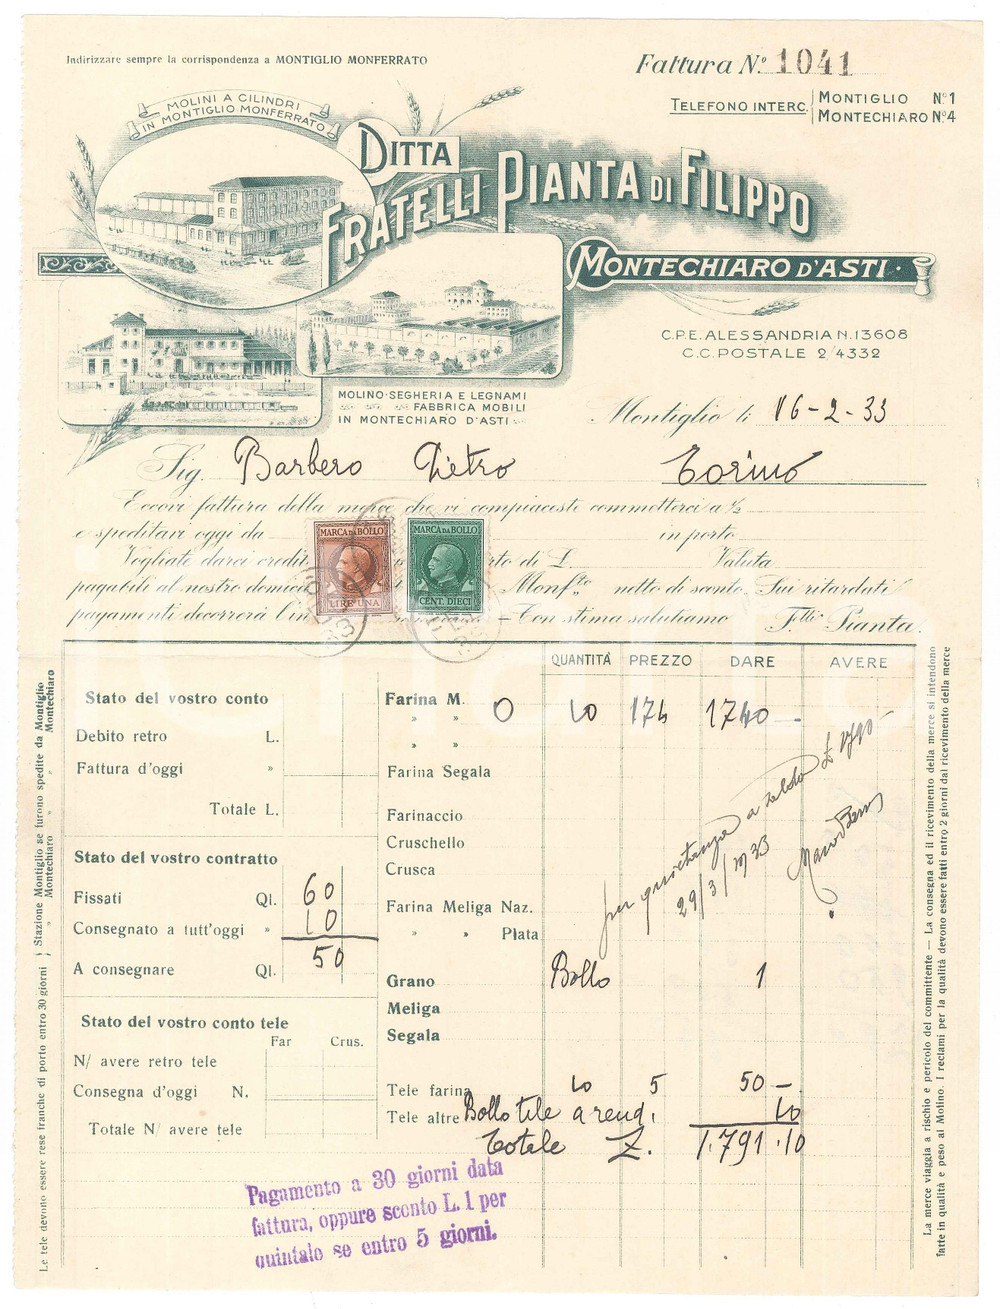 Indirizzare sempre la corrispondenza a MONTIGLIO MONFERRATO
Fattura N.º 1041
TELEFONO INTERC. MONTIGLIO Nº1
MONTECHIARO Nº4
MOLINI A CILINDRI
IN MONTIGLIO MONFERRATO
DITTA
FRATELLI PIANTA DI FILIPPO
MONTECHIARO D'ASTI
C.P.E. ALESSANDRIA N.13608
C.C. POSTALE 2/4332
MOLINO-SEGHERIA E LEGNAMI
FABBRICA MOBILI
IN MONTECHIARO D'ASTI
Montiglio li 16-2-33
Sig. Barbero Pietro Torino
Eccovi fattura della merce che vi compiaceste commetterci a ½
e speditavi oggi da in porto
Vogliate darci credit to di L. Valuta
pagabili al nostro domici Monf.to netto di sconto. Sui ritardati
pagamenti decorrerà l'in - Con stima salutiamo F.lli Pianta.
MARCA DA BOLLO
LIRE UNA
MARCA DA BOLLO
CENT. DIECI
QUANTITÀ PREZZO DARE AVERE
Stato del vostro conto
Debito retro L.
Fattura d'oggi »
Totale L.
Stato del vostro contratto
Fissati Ql. 60
Consegnato a tutt'oggi » 10
A consegnare Ql. 50
Stato del vostro conto tele
Far Crus.
N/ avere retro tele
Consegna d'oggi N.
Totale N/ avere tele
Farina M. 0 10 174 1740 -
» »
» »
Farina Segala
Farinaccio
Cruschello
Crusca
Farina Meliga Naz.
» » Plata
Grano Bollo 1
Meliga
Segala
Tele farina 10 5 50 -
Tele altre Bollo tele a rend. 10
Totale L. 1.791.10
per quietanza a saldo £ 1790 -
29/3/1933
Pagamento a 30 giorni data
fattura, oppure sconto L. 1 per
quintale se entro 5 giorni.
Le tele devono essere rese franche di porto entro 30 giorni } Stazione Montiglio se furono spedite da Montiglio
» Montechiaro » » Montechiaro
La merce viaggia a rischio e pericolo del committente — La consegna ed il ricevimento della merce si intendono
fatte in qualità e peso al Molino. I reclami per la qualità devono essere fatti entro 2 giorni dal ricevimento della merce